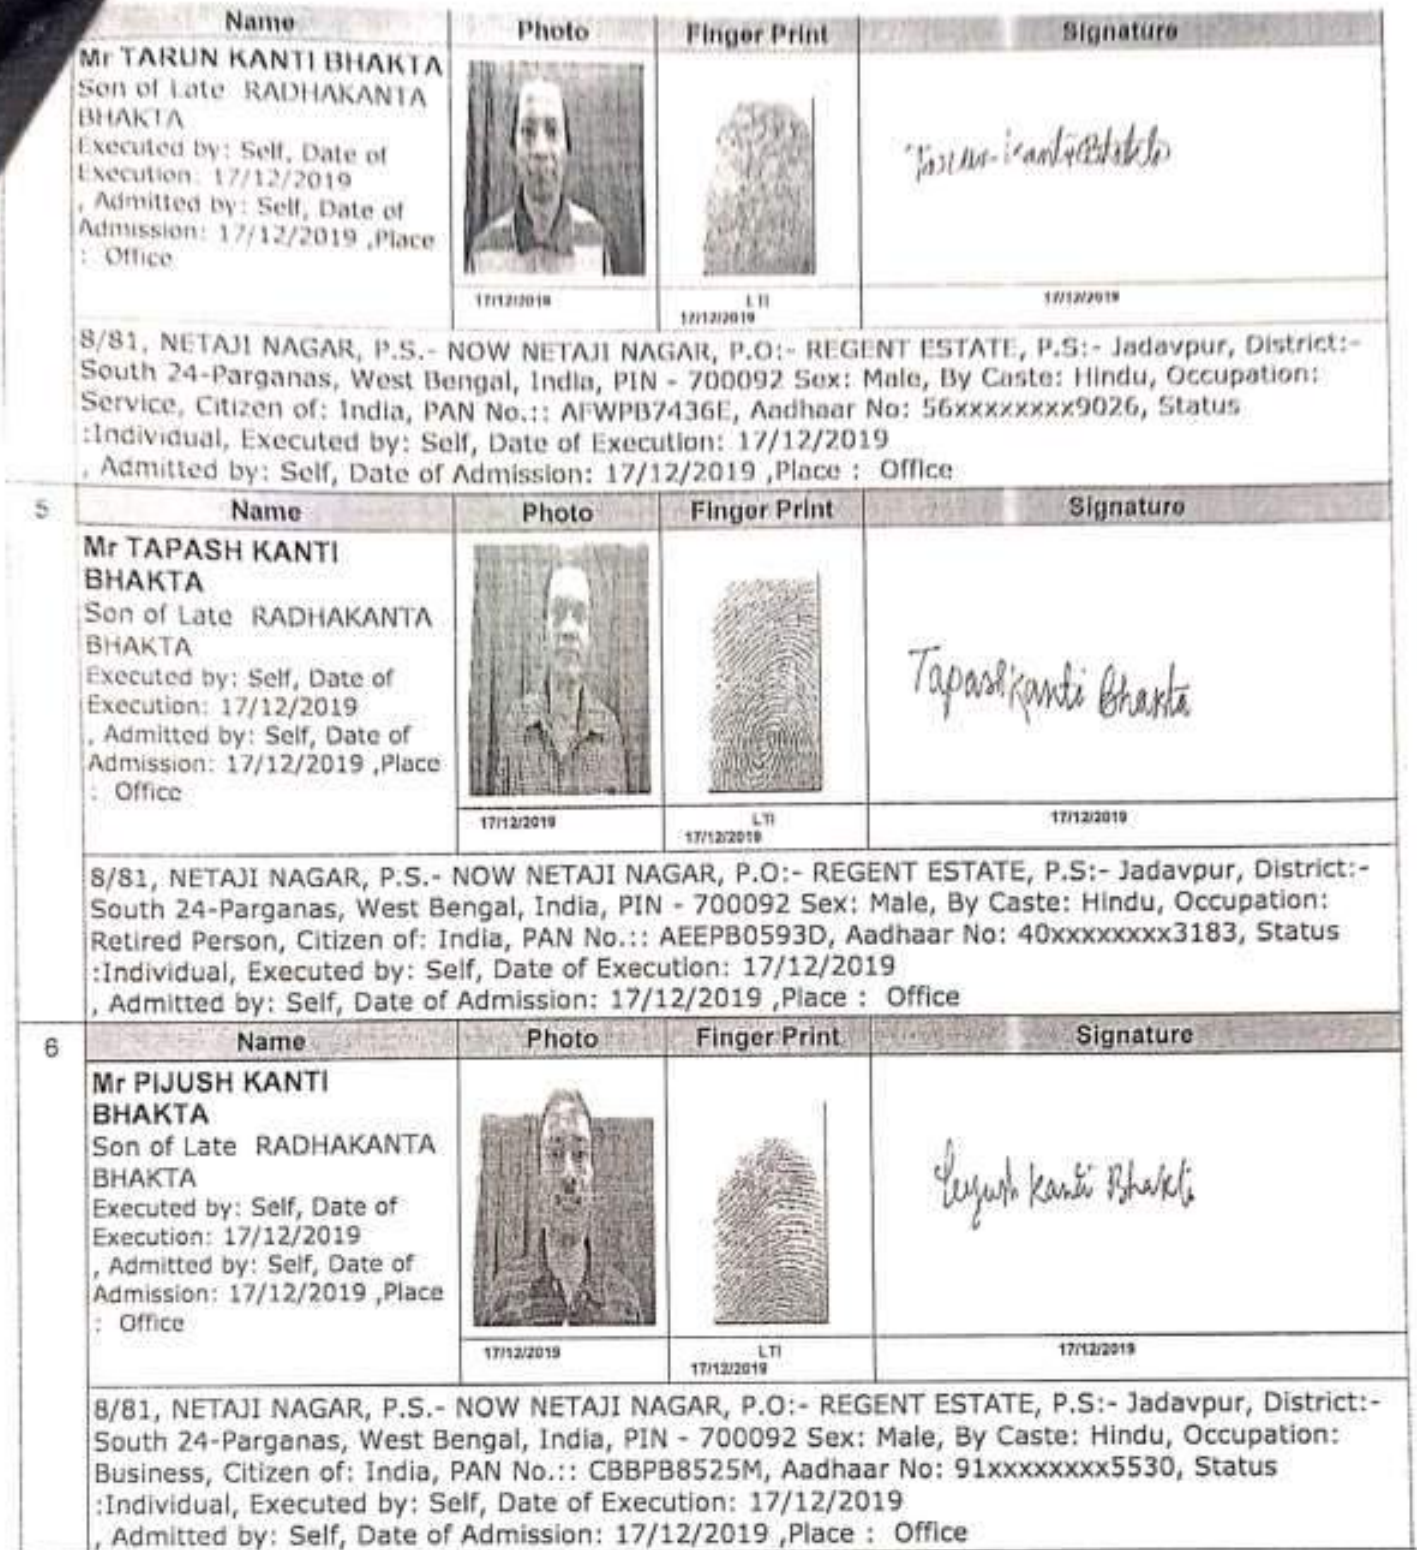 Name Photo Finger Print Signature
Mr TARUN KANTI BHAKTA
Son of Late RADHAKANTA
BHAKTA
Executed by: Self, Date of
Execution: 17/12/2019
, Admitted by: Self, Date of
Admission: 17/12/2019 ,Place
: Office
Tarun Kanti Bhakta
17/12/2019 LTI 17/12/2019
17/12/2019
8/81, NETAJI NAGAR, P.S.- NOW NETAJI NAGAR, P.O:- REGENT ESTATE, P.S:- Jadavpur, District:-
South 24-Parganas, West Bengal, India, PIN - 700092 Sex: Male, By Caste: Hindu, Occupation:
Service, Citizen of: India, PAN No.:: AFWPB7436E, Aadhaar No: 56xxxxxxxx9026, Status
:Individual, Executed by: Self, Date of Execution: 17/12/2019
, Admitted by: Self, Date of Admission: 17/12/2019 ,Place : Office
5 Name Photo Finger Print Signature
Mr TAPASH KANTI
BHAKTA
Son of Late RADHAKANTA
BHAKTA
Executed by: Self, Date of
Execution: 17/12/2019
, Admitted by: Self, Date of
Admission: 17/12/2019 ,Place
: Office
Tapash Kanti Bhakta
17/12/2019 LTI 17/12/2019
17/12/2019
8/81, NETAJI NAGAR, P.S.- NOW NETAJI NAGAR, P.O:- REGENT ESTATE, P.S:- Jadavpur, District:-
South 24-Parganas, West Bengal, India, PIN - 700092 Sex: Male, By Caste: Hindu, Occupation:
Retired Person, Citizen of: India, PAN No.:: AEEPB0593D, Aadhaar No: 40xxxxxxxx3183, Status
:Individual, Executed by: Self, Date of Execution: 17/12/2019
, Admitted by: Self, Date of Admission: 17/12/2019 ,Place : Office
6 Name Photo Finger Print Signature
Mr PIJUSH KANTI
BHAKTA
Son of Late RADHAKANTA
BHAKTA
Executed by: Self, Date of
Execution: 17/12/2019
, Admitted by: Self, Date of
Admission: 17/12/2019 ,Place
: Office
Kanti Bhakta
17/12/2019 LTI 17/12/2019
17/12/2019
8/81, NETAJI NAGAR, P.S.- NOW NETAJI NAGAR, P.O:- REGENT ESTATE, P.S:- Jadavpur, District:-
South 24-Parganas, West Bengal, India, PIN - 700092 Sex: Male, By Caste: Hindu, Occupation:
Business, Citizen of: India, PAN No.:: CBBPB8525M, Aadhaar No: 91xxxxxxxx5530, Status
:Individual, Executed by: Self, Date of Execution: 17/12/2019
, Admitted by: Self, Date of Admission: 17/12/2019 ,Place : Office